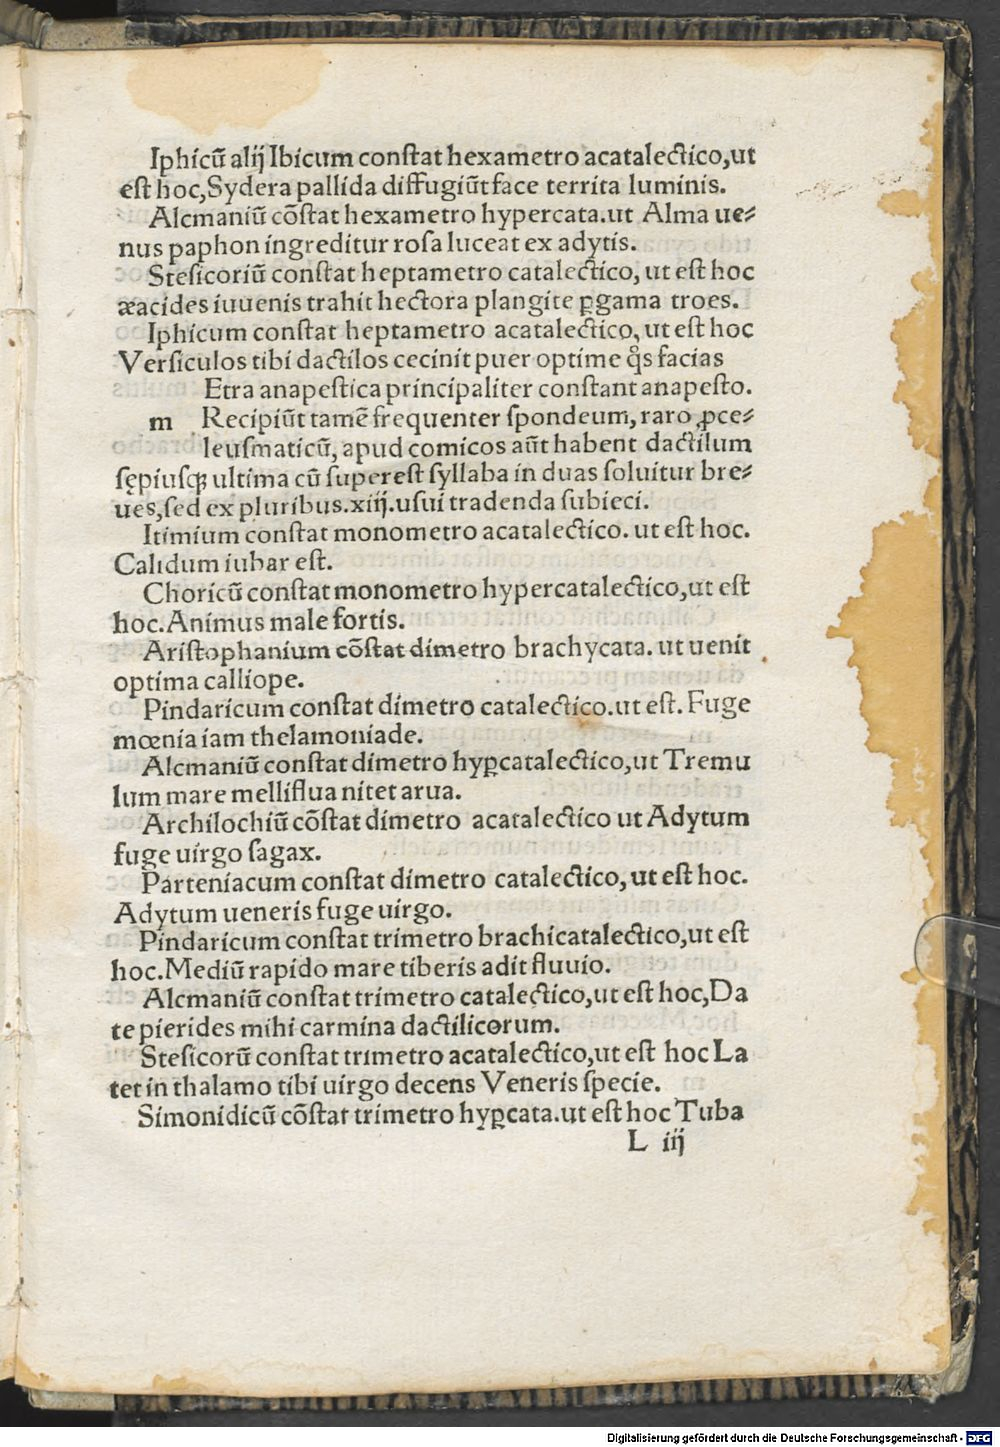 Iphicū alij Ibicum constat hexametro acatalectico,ut
est hoc,Sydera pallida diffugiūt face territa luminis.
Alcmaniū cōstat hexametro hypercata.ut Alma ue⸗
nus paphon ingreditur rosa luceat ex adytis.
Stesicoriū constat heptametro catalectico, ut est hoc
æacides iuuenis trahit hectora plangite ꝑgama troes.
Iphicum constat heptametro acatalectico, ut est hoc
Versiculos tibi dactilos cecinit puer optime qͦs facias
Etra anapestica principaliter constant anapesto.
m Recipiūt tamē frequenter spondeum, raro ꝓce⸗
leusmaticū, apud comicos aūt habent dactilum
sępiusqꝫ ultima cū superest syllaba in duas soluitur bre⸗
ues,sed ex pluribus.xiij.usui tradenda subieci.
Itimium constat monometro acatalectico. ut est hoc.
Calidum iubar est.
Choricū constat monometro hypercatalectico,ut est
hoc.Animus male fortis.
Aristophanium cōstat dimetro brachycata. ut uenit
optima calliope.
Pindaricum constat dimetro catalectico.ut est. Fuge
mœnia iam thelamoniade.
Alcmaniū constat dimetro hyꝑcatalectico,ut Tremu
lum mare melliflua nitet arua.
Archilochiū cōstat dimetro acatalectico ut Adytum
fuge uirgo sagax.
Parteniacum constat dimetro catalectico, ut est hoc.
Adytum ueneris fuge uirgo.
Pindaricum constat trimetro brachicatalectico,ut est
hoc.Mediū rapido mare tiberis adit fluuio.
Alcmaniū constat trimetro catalectico,ut est hoc,Da
te pierides mihi carmina dactilicorum.
Stesicorū constat trimetro acatalectico,ut est hoc La
tet in thalamo tibi uirgo decens Veneris specie.
Simonidicū cōstat trimetro hyꝑcata.ut est hoc Tuba
L iij
Digitalisierung gefördert durch die Deutsche Forschungsgemeinschaft - DFG